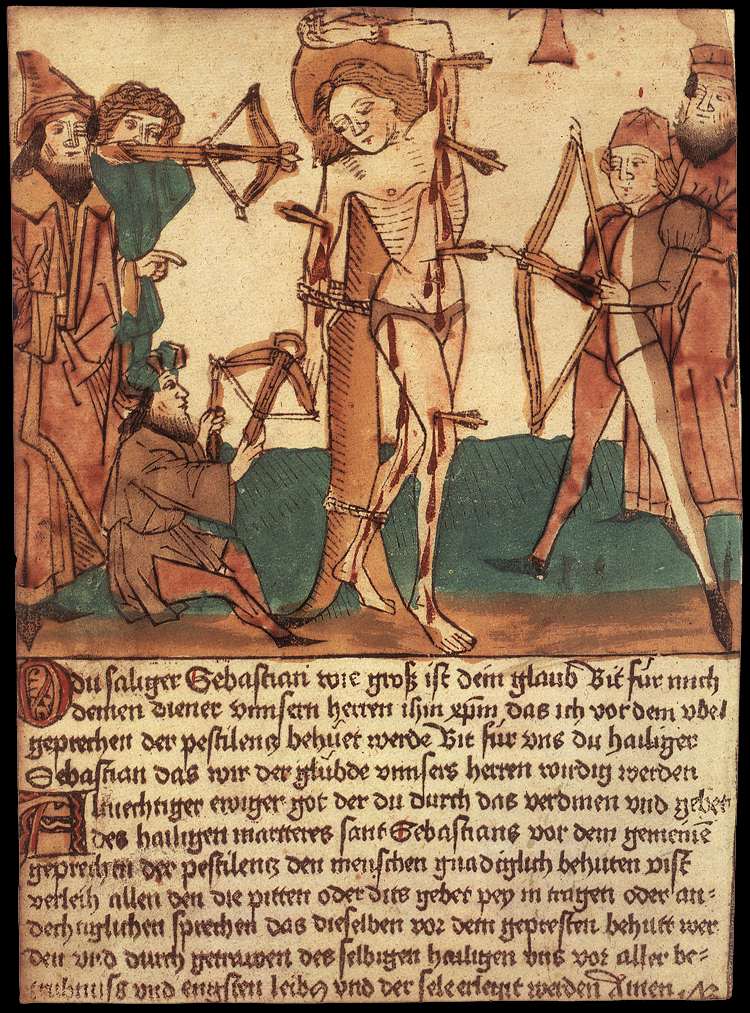 O du saliger Sebastian wie groß ist dein glaub Bit für mich
deinen diener vnnsern herren ihm xpm das ich vor dem vbel
geprechen der pestilentz behüet werde Bit für vns du hailiger
Sebastian das wir der glübde vnnsers herren wirdig werden
Almechtiger ewiger got der du durch das verdinen vnd gebet
des hailigen martteres sant Sebastians vor dem gemeinē
geprechen der pestilentz den menschen gnadiglich behuten pist
verleih allen den die pitten oder ditz gebet pey in tragen oder an=
dechtiglichen sprechen das dieselben vor dem gepresten behütt wer
den vnd durch getrawen des selbigen hailigen vns vor aller be=
trubnuss vnd engsten leibs vnd der sele erlegit werden Amen